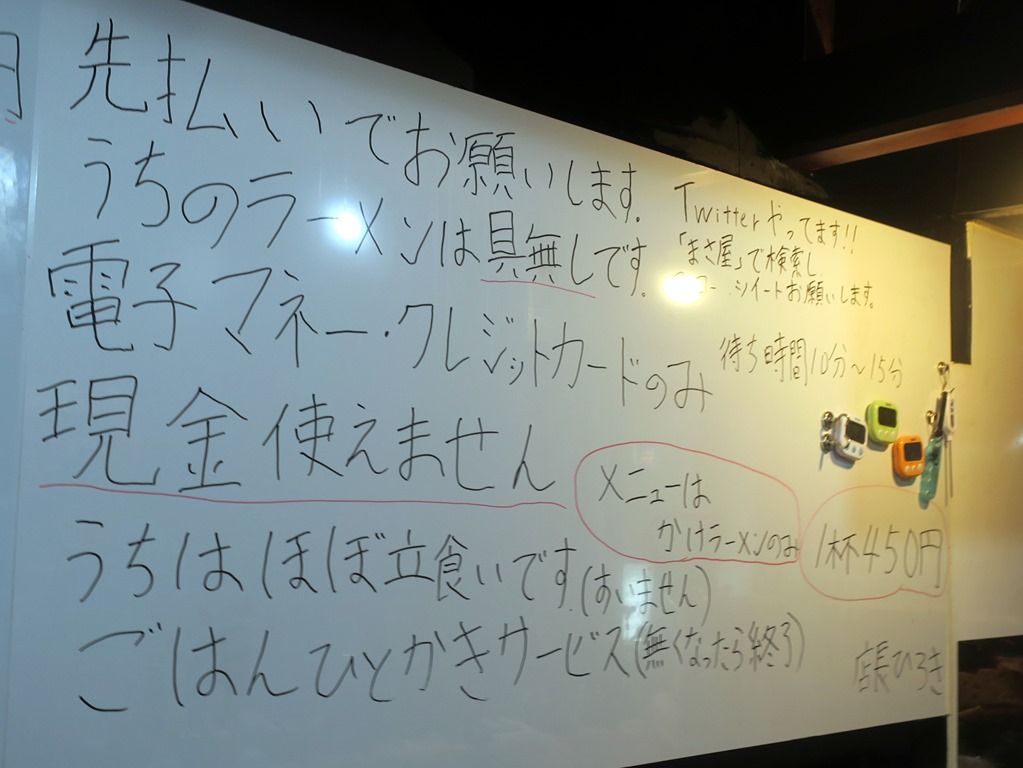 円
先払いでお願いします.
うちのラーメンは具無しです.
電子マネー・クレジットカードのみ
現金使えません
うちはほぼ立食いです.(すいません)
ごはんひとかきサービス(無くなったら終了)
Twitterやってます!!
「まさ屋」で検索し,
ツイートお願いします.
待ち時間10分〜15分
メニューは
かけラーメンのみ
1杯450円
店長ひろき